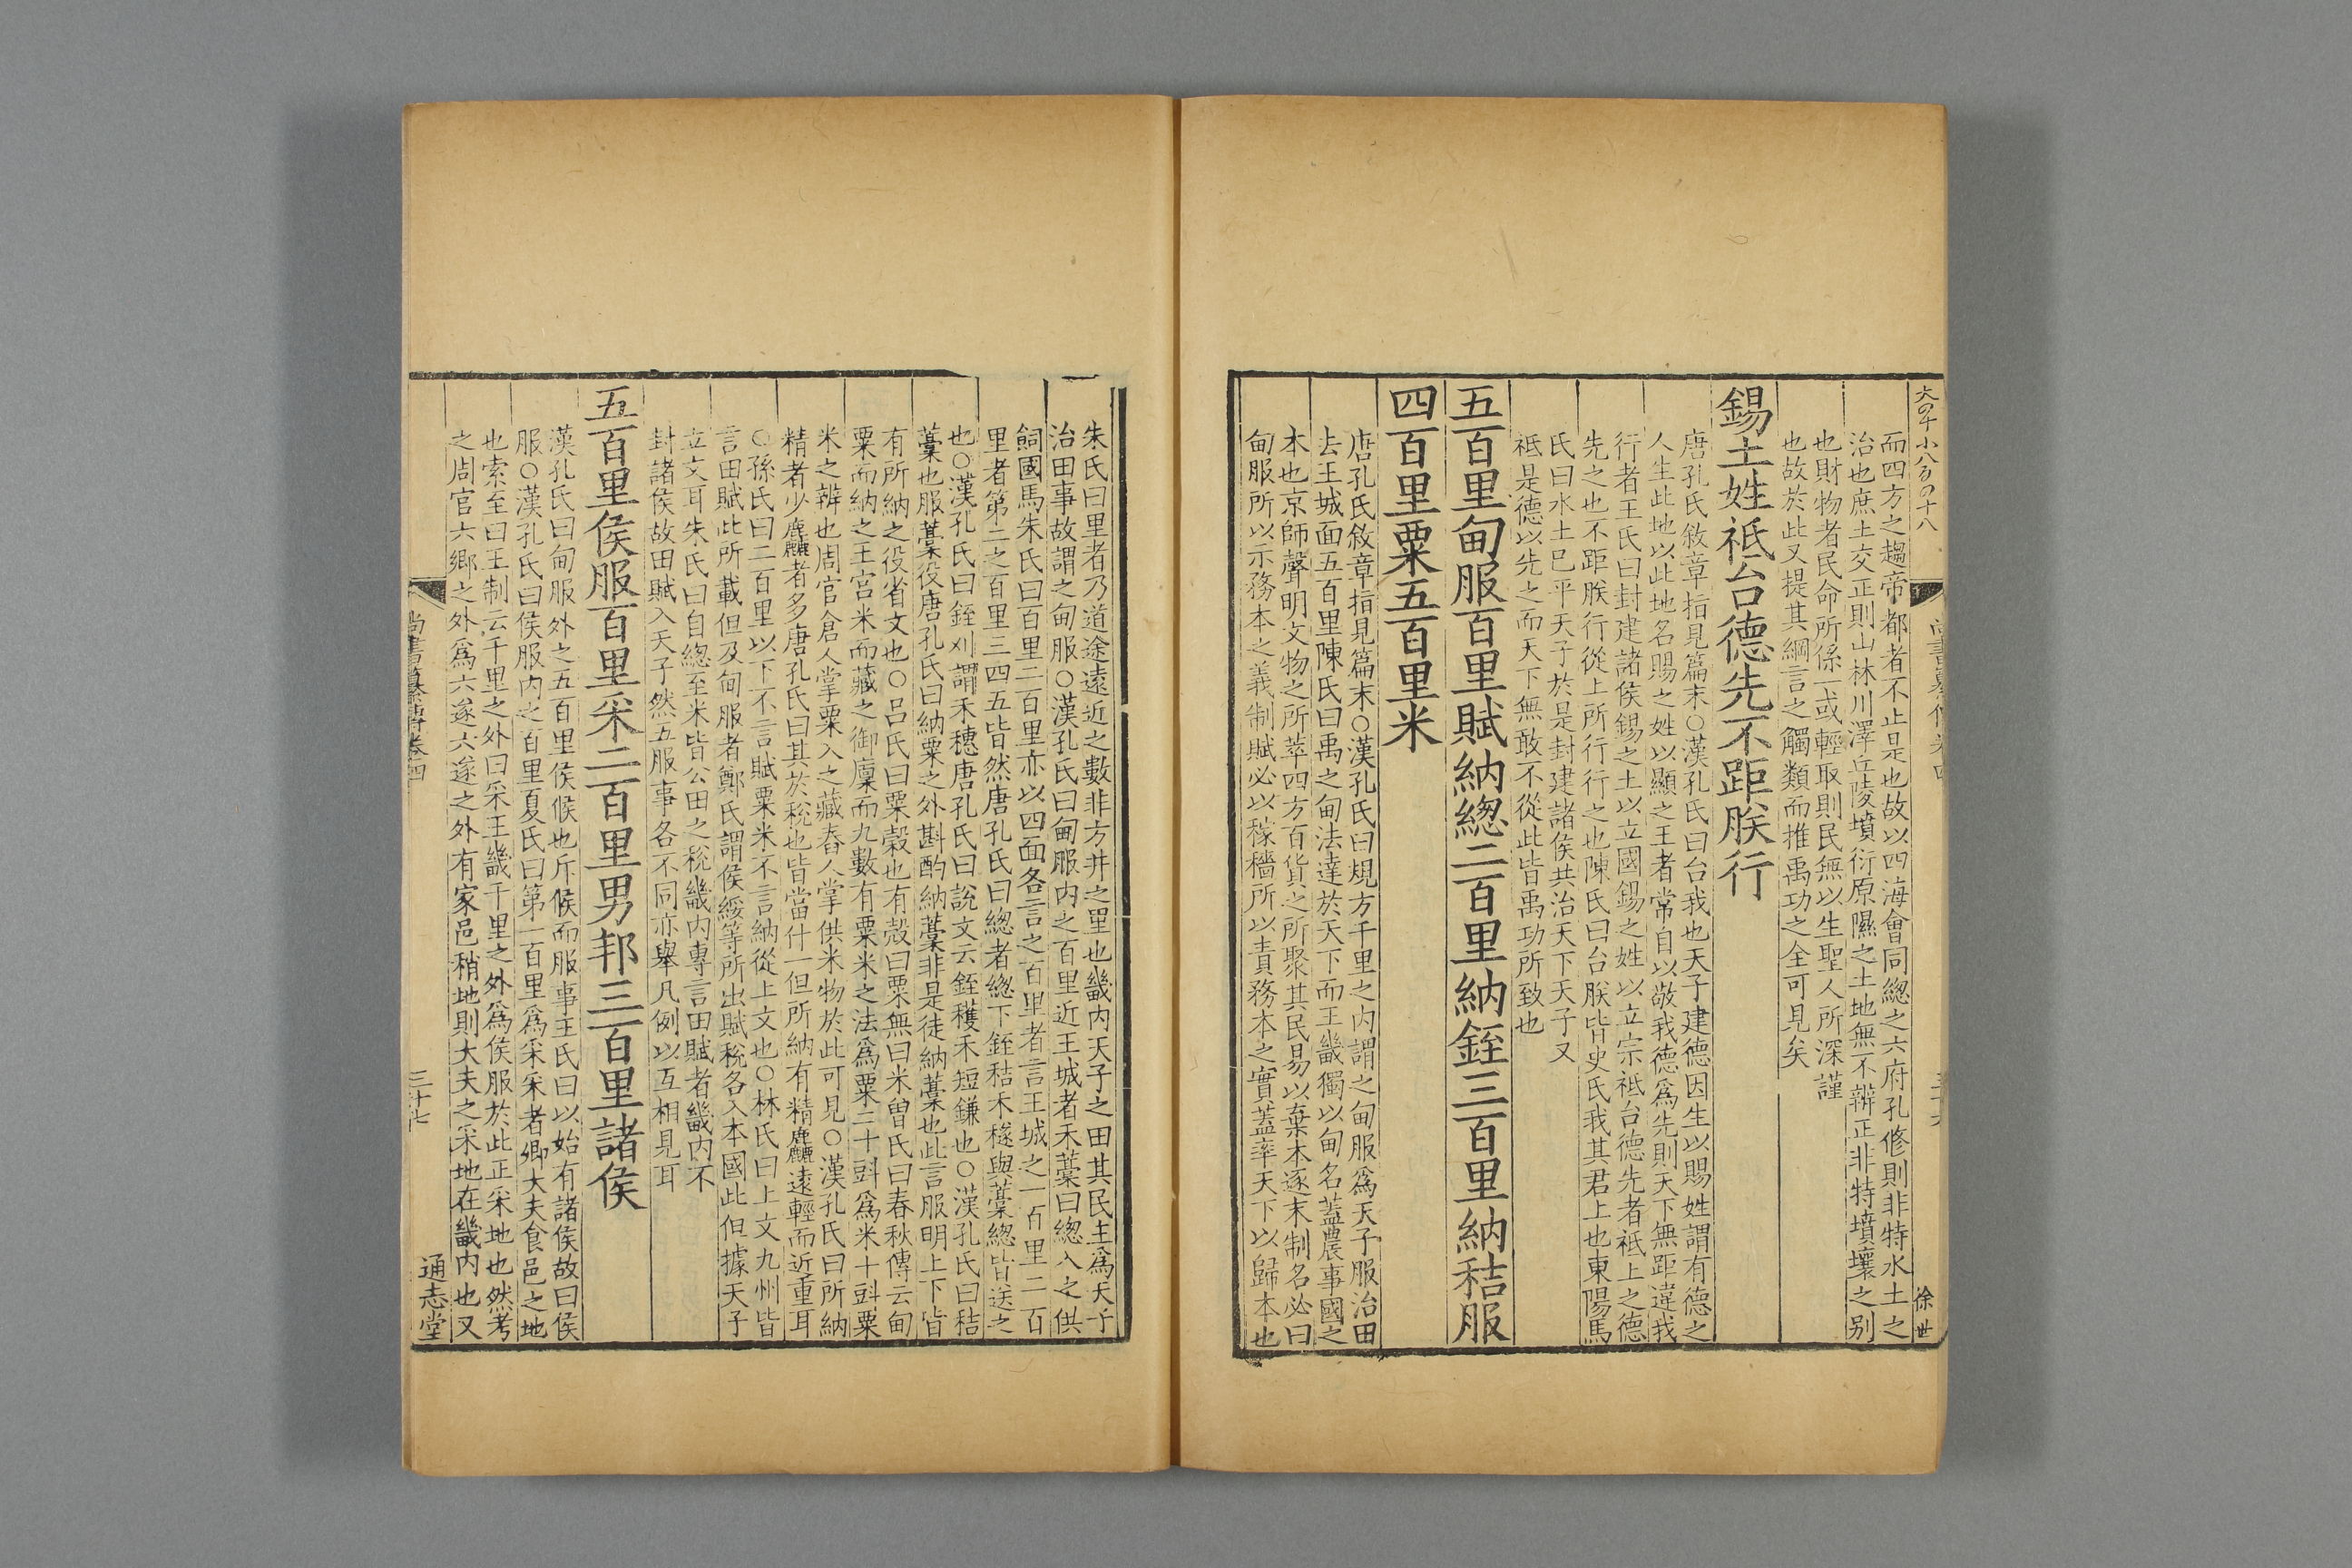 而四方之趨帝都者不止是也故以四海會同總之六府孔修則非特水土之
治也庶土交正則山林川澤丘陵墳衍原隰之土地無不辨正非特墳壤之别
也財物者民命所係一或輕取則民無以生聖人所深謹
也故於此又提其綱言之觸類而推禹功之全可見矣
錫土姓祗台德先不距朕行
唐孔氏敘章指見篇末○漢孔氏曰台我也天子建德因生以賜姓謂有德之
人生此地以此地名賜之姓以顯之王者常自以敬我德爲先則天下無距違我
行者王氏曰封建諸侯錫之土以立國錫之姓以立宗祗台德先者祗上之德
先之也不距朕行從上所行行之也陳氏曰台朕皆史氏我其君上也東陽馬
氏曰水土已平天子於是封建諸侯共治天下天子又
祗是德以先之而天下無敢不從此皆禹功所致也
五百里甸服百里賦納緫二百里納銍三百里納秸服
四百里粟五百里米
唐孔氏敘章指見篇末○漢孔氏曰規方千里之内謂之甸服爲天子服治田
去王城面五百里陳氏曰禹之甸法達於天下而王畿獨以甸名蓋農事國之
本也京師聲明文物之所萃四方百貨之所聚其民易以棄本逐末制名必曰
甸服所以示務本之義制賦必以稼穡所以責務本之實蓋率天下以歸本也
徐世
朱氏曰里者乃道途遠近之數非方井之里也畿内天子之田其民主爲天子
治田事故謂之甸服○漢孔氏曰甸服内之百里近王城者禾藁曰緫入之供
飼國馬朱氏曰百里二百里亦以四面各言之百里者言王城之一百里二百
里者第二之百里三四五皆然唐孔氏曰緫者緫下銍秸禾穟與藁緫皆送之
也○漢孔氏曰銍刈謂禾穗唐孔氏曰說文云銍穫禾短鎌也○漢孔氏曰秸
藁也服藁役唐孔氏曰納粟之外斟酌納藁非是徒納藁也此言服明上下皆
有所納之役省文也○呂氏曰粟穀也有殼曰粟無曰米曾氏曰春秋傳云甸
粟而納之王宮米而藏之御廩而九數有粟米之法爲粟二十㪷爲米十㪷粟
米之辨也周官倉人掌粟入之藏舂人掌供米物於此可見○漢孔氏曰所納
精者少麤者多唐孔氏曰其於稅也皆當什一但所納有精麤遠輕而近重耳
○孫氏曰二百里以下不言賦粟米不言納從上文也○林氏曰上文九州皆
言田賦此所載但及甸服者鄭氏謂侯綏等所出賦稅各入本國此但據天子
立文耳朱氏曰自緫至米皆公田之稅畿内專言田賦者畿内不
封諸侯故田賦入天子然五服事各不同亦舉凡例以互相見耳
五百里侯服百里采二百里男邦三百里諸侯
漢孔氏曰甸服外之五百里侯候也斥候而服事王氏曰以始有諸侯故曰侯
服○漢孔氏曰侯服内之百里夏氏曰第一百里爲采采者卿大夫食邑之地
也索至曰王制云千里之外曰采王畿千里之外爲侯服於此正采地也然考
之周官六鄉之外爲六遂六遂之外有家邑稍地則大夫之采地在畿内也又
三十七
通志堂